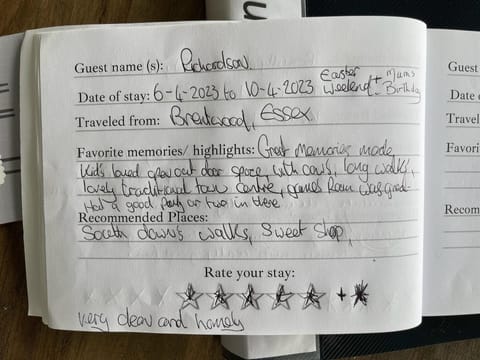 Guest name (s): Richardson.
Date of stay: 6-4-2023 to 10-4-2023 Easter weekend + Mums Birthday
Traveled from: Brentwood, Essex
Favorite memories/ highlights: Great Memories made,
Kids loved open out door space, with cows, long walks,
lovely traditional town centre, games Room was good-
Had a good Party or two in there
Recommended Places:
South downs walks, Sweet Shop,
Rate your stay:
+
very clean and homely
Guest
Date o
Travele
Favori
Recom